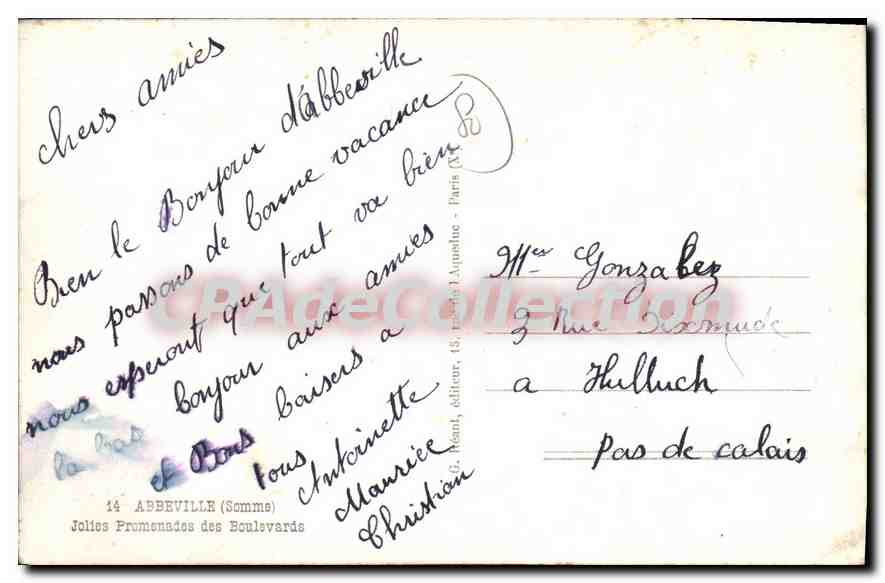 chers amies
Bien le Bonjour d'Abbeville
nous passons de bonne vacance
nous esperont que tout va bien
la bas bonjour aux amies
et Bons baisers a
tous Antoinette
Maurice
Christian
14 ABBEVILLE (Somme)
Jolies Promenades des Boulevards
G. Réant, éditeur, 15, rue de l'Aqueduc - Paris (Xe)
Mes Gonzalez
3 Rue Dixmude
a Hulluch
Pas de calais
CPAdeCollection